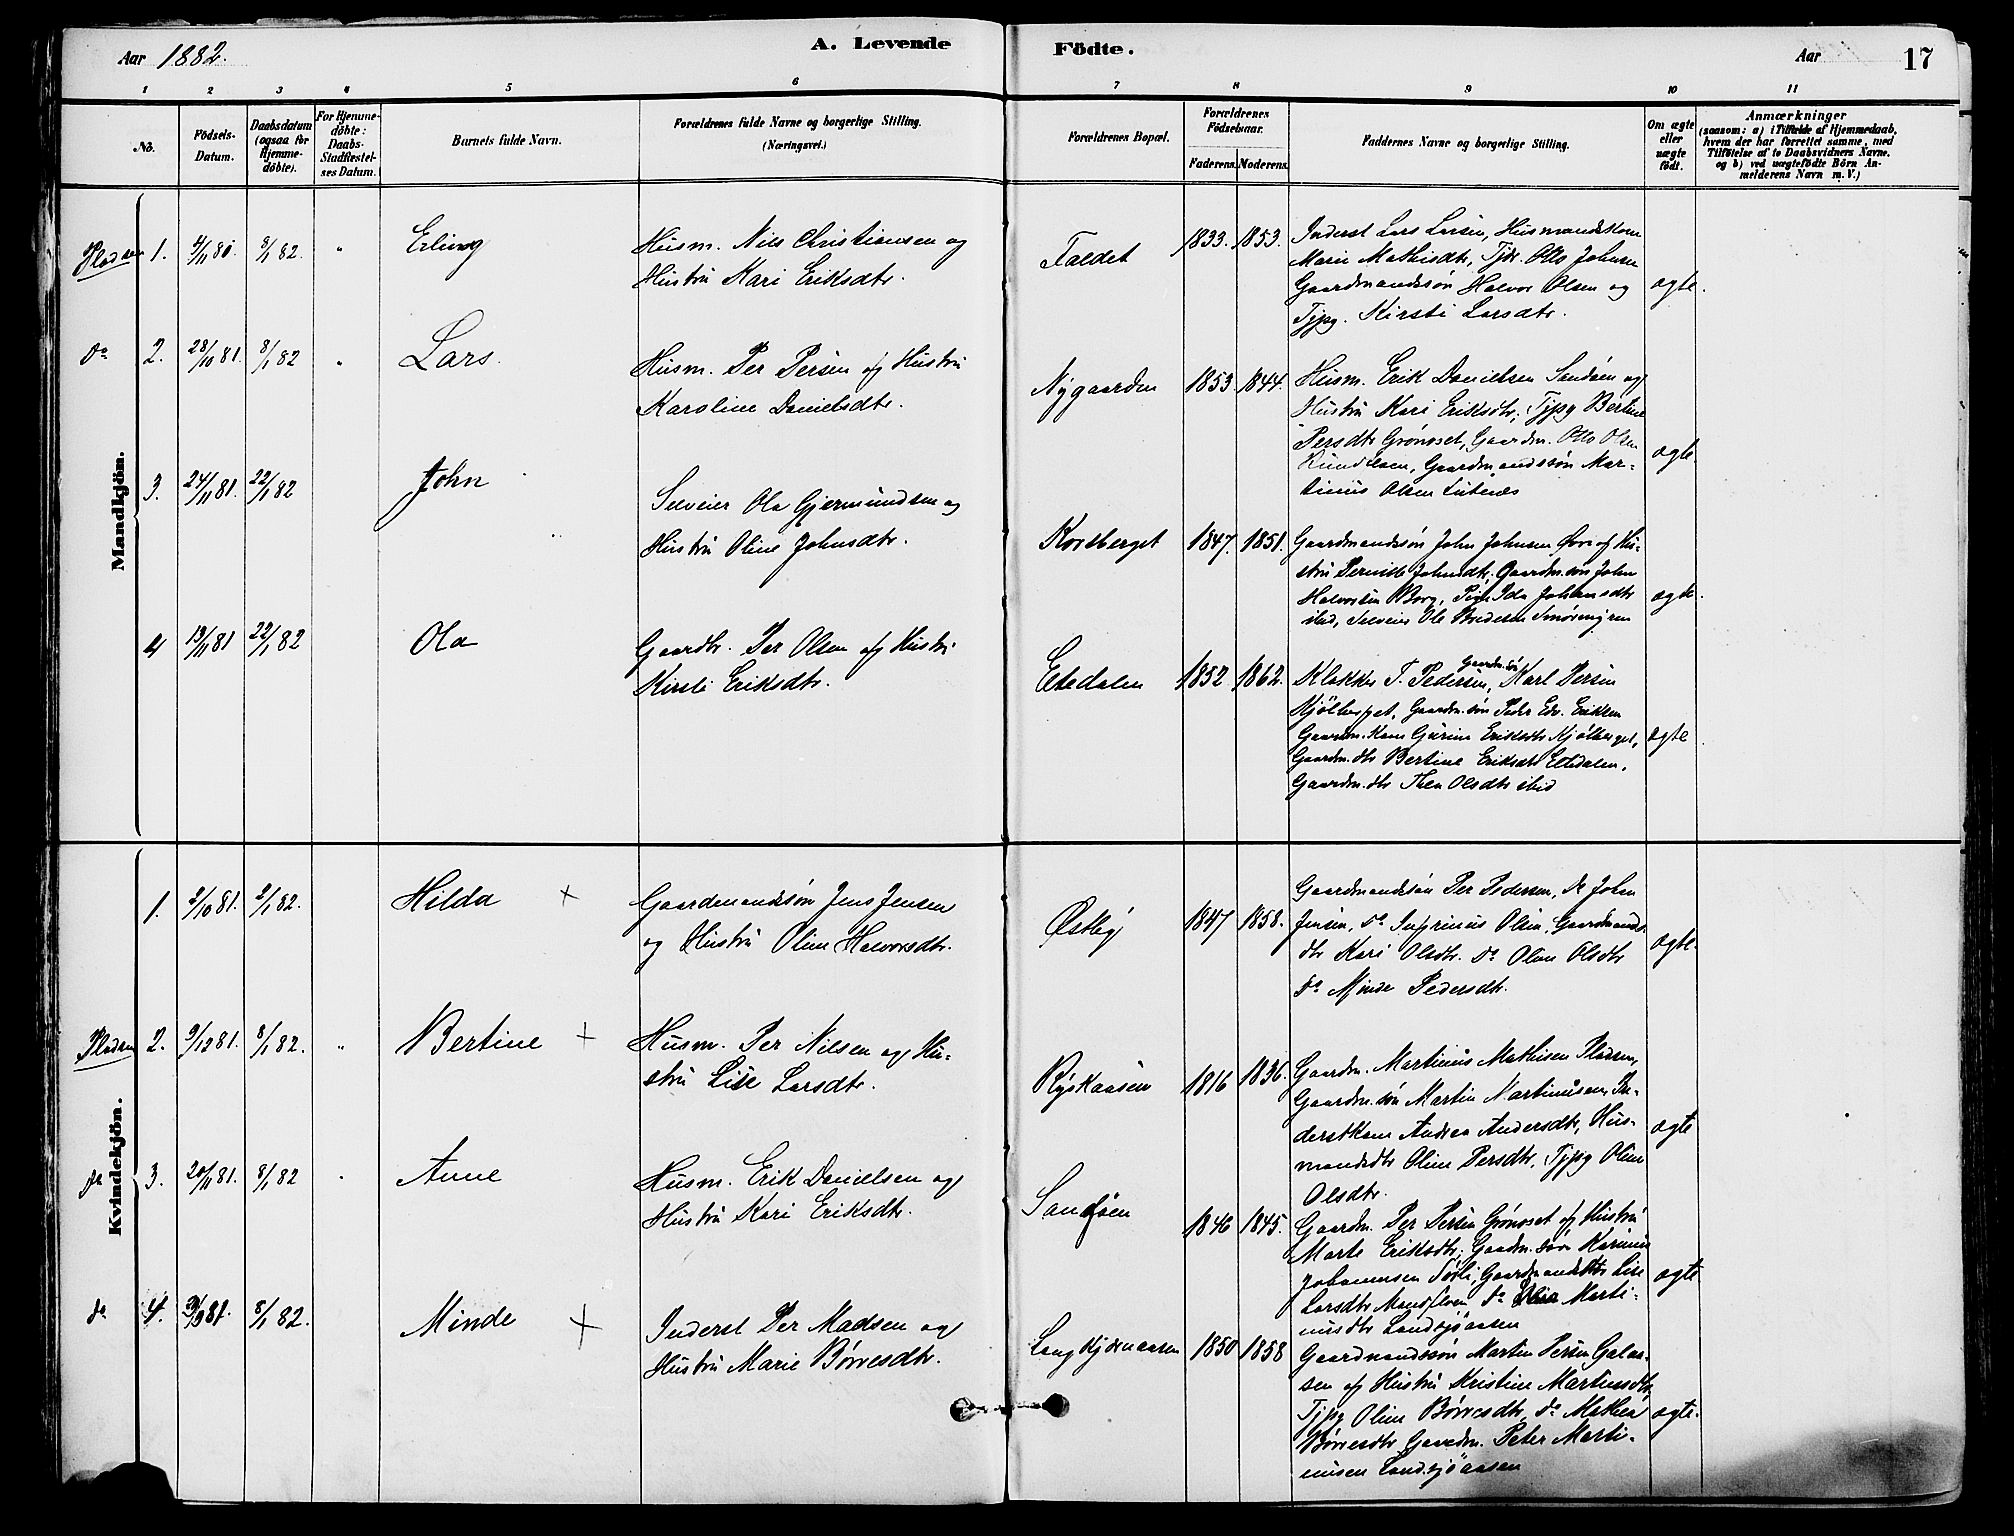 Aar 1882.
A. Levende Födte.
Aar
17
1 2 3 4 5 6 7 8 9 10 11
No.
Födsels-
Datum.
Daabsdatum
(ogsaa for
Hjemme-
döbte).
For Hjemme-
döbte:
Daabs-
Stadfæstel-
ses Datum.
Barnets fulde Navn.
Forældrenes fulde Navne og borgerlige Stilling.
(Næringsvei.)
Forældrenes Bopæl.
Forældrenes
Födselsaar.
Faderens. Moderens.
Faddernes Navne og borgerlige Stilling.
Om ægte
eller
uægte
födt.
Anmærkninger
(saasom: a) i Tilfælde af Hjemmedaab,
hvem der har forrettet samme, med
Tilföielse af to Daabsvidners Navne.
og b) ved uægtefödte Börn An-
melderens Navn m. V.)
Mandkjön.
Pladsen 1. 8/1 82. " Erling
Husm. Nils Christiansen og
Hustru Kari Eriksdtr.
Faldet 1833. 1853.
Inderst Lars Larsen, Husmandskone
Marie Mathisdtr, Tjdr. Otto Johnsen
Gaardmandssøn Halvor Olsen og
Tjpg. Kirsti Larsdtr.
ægte.
do 2. 28/10 81. 8/1 82 " Lars.
Husm. Per Persen og Hustru
Karoline Danielsdtr.
Nygaarden 1853. 1844.
Husm. Erik Danielsen Sandaen og
Hustru Kari Eriksdtr, Tjpg Bertine
Persdtr Grønoset, Gaardm. Otto Olsen
Gaardmandssøn Mar-
tinius Olsen
ægte.
3. 24/11 81. 22/1 82 John
Selveier Ola Gjermundsen og
Hustru Oline Johnsdtr.
Korsberget 1847. 1851.
Gaardmandssøn John Johnsen Øvre og Hu-
stru Pernille Johnsdtr. Gaardm.søn John
Halvorsen Borg, Pige Ida Johansdtr
ibid, Selveier Ole
ægte.
4 13/11 81 22/1 82 Ola
Gaardbr. Per Olsen og Hustru
Kirsti Eriksdtr.
Eltedalen 1852 1862.
Klokker T. Pedersen, Gaardm.søn Karl Persen
Kjølberget, Gaardm.søn Peder Edv. Eriksen
Gaardm.Kone Gurine Eriksdtr Kjølberget,
Gaardm.dtr Bertine Eriksdtr Eltedalen,
Gaardm.dtr Thea Olsdtr ibid
ægte
Kvindekjön.
1. 2/10 81. 2/1 82. Hilda x
Gaardmandssøn Jens Jensen
og Hustru Oline Halvorsdtr.
Østby 1847 1858.
Gaardmandssøn Per Pedersen, do Johan
Jensen, do Olsen, Gaardmands-
dtr Kari Olsdtr. do Oline Olsdtr
do Minde Pedersdtr.
ægte.
Pladsen 2. 9/12 81. 8/1 82. " Bertine +
Husm. Per Nilsen og Hu-
stru Lise Larsdtr.
Ryskaasen 1816 1836.
Gaardm. Martinius Mathisen Pladsen,
Gaardm.søn Martin Martinusen, In-
derstkone Andrea Andersdtr, Hus-
mandsdtr Oline Persdtr, Tjpg Oline
Olsdtr.
ægte
do 3. 20/11 81. 8/1 82 " Anne
Husm. Erik Danielsen og
Hustru Kari Eriksdtr.
Sandaaen 1846 1845.
Gaardm. Per Persen Grønoset og Hustru
Marte Eriksdtr, Gaardm.søn Karinius
Johannesen Sørli, Gaardmandsdtr Lise
Larsdtr do Marti-
nusdtr Landsjøaasen
ægte
do 4. 8/1 82. Minde x
Inderst Per Madsen og
Hustru Marie Børresdtr.
Langkjernaasen 1850 1858
Gaardmandssøn Martin Persen Galaa-
sen og Hustru Kristine Martinsdtr,
Tjpg Oline Børresdtr, do Mathea
Børresdtr Gaardm. Peter Marti-
nusen Landsjøaasen
ægte.